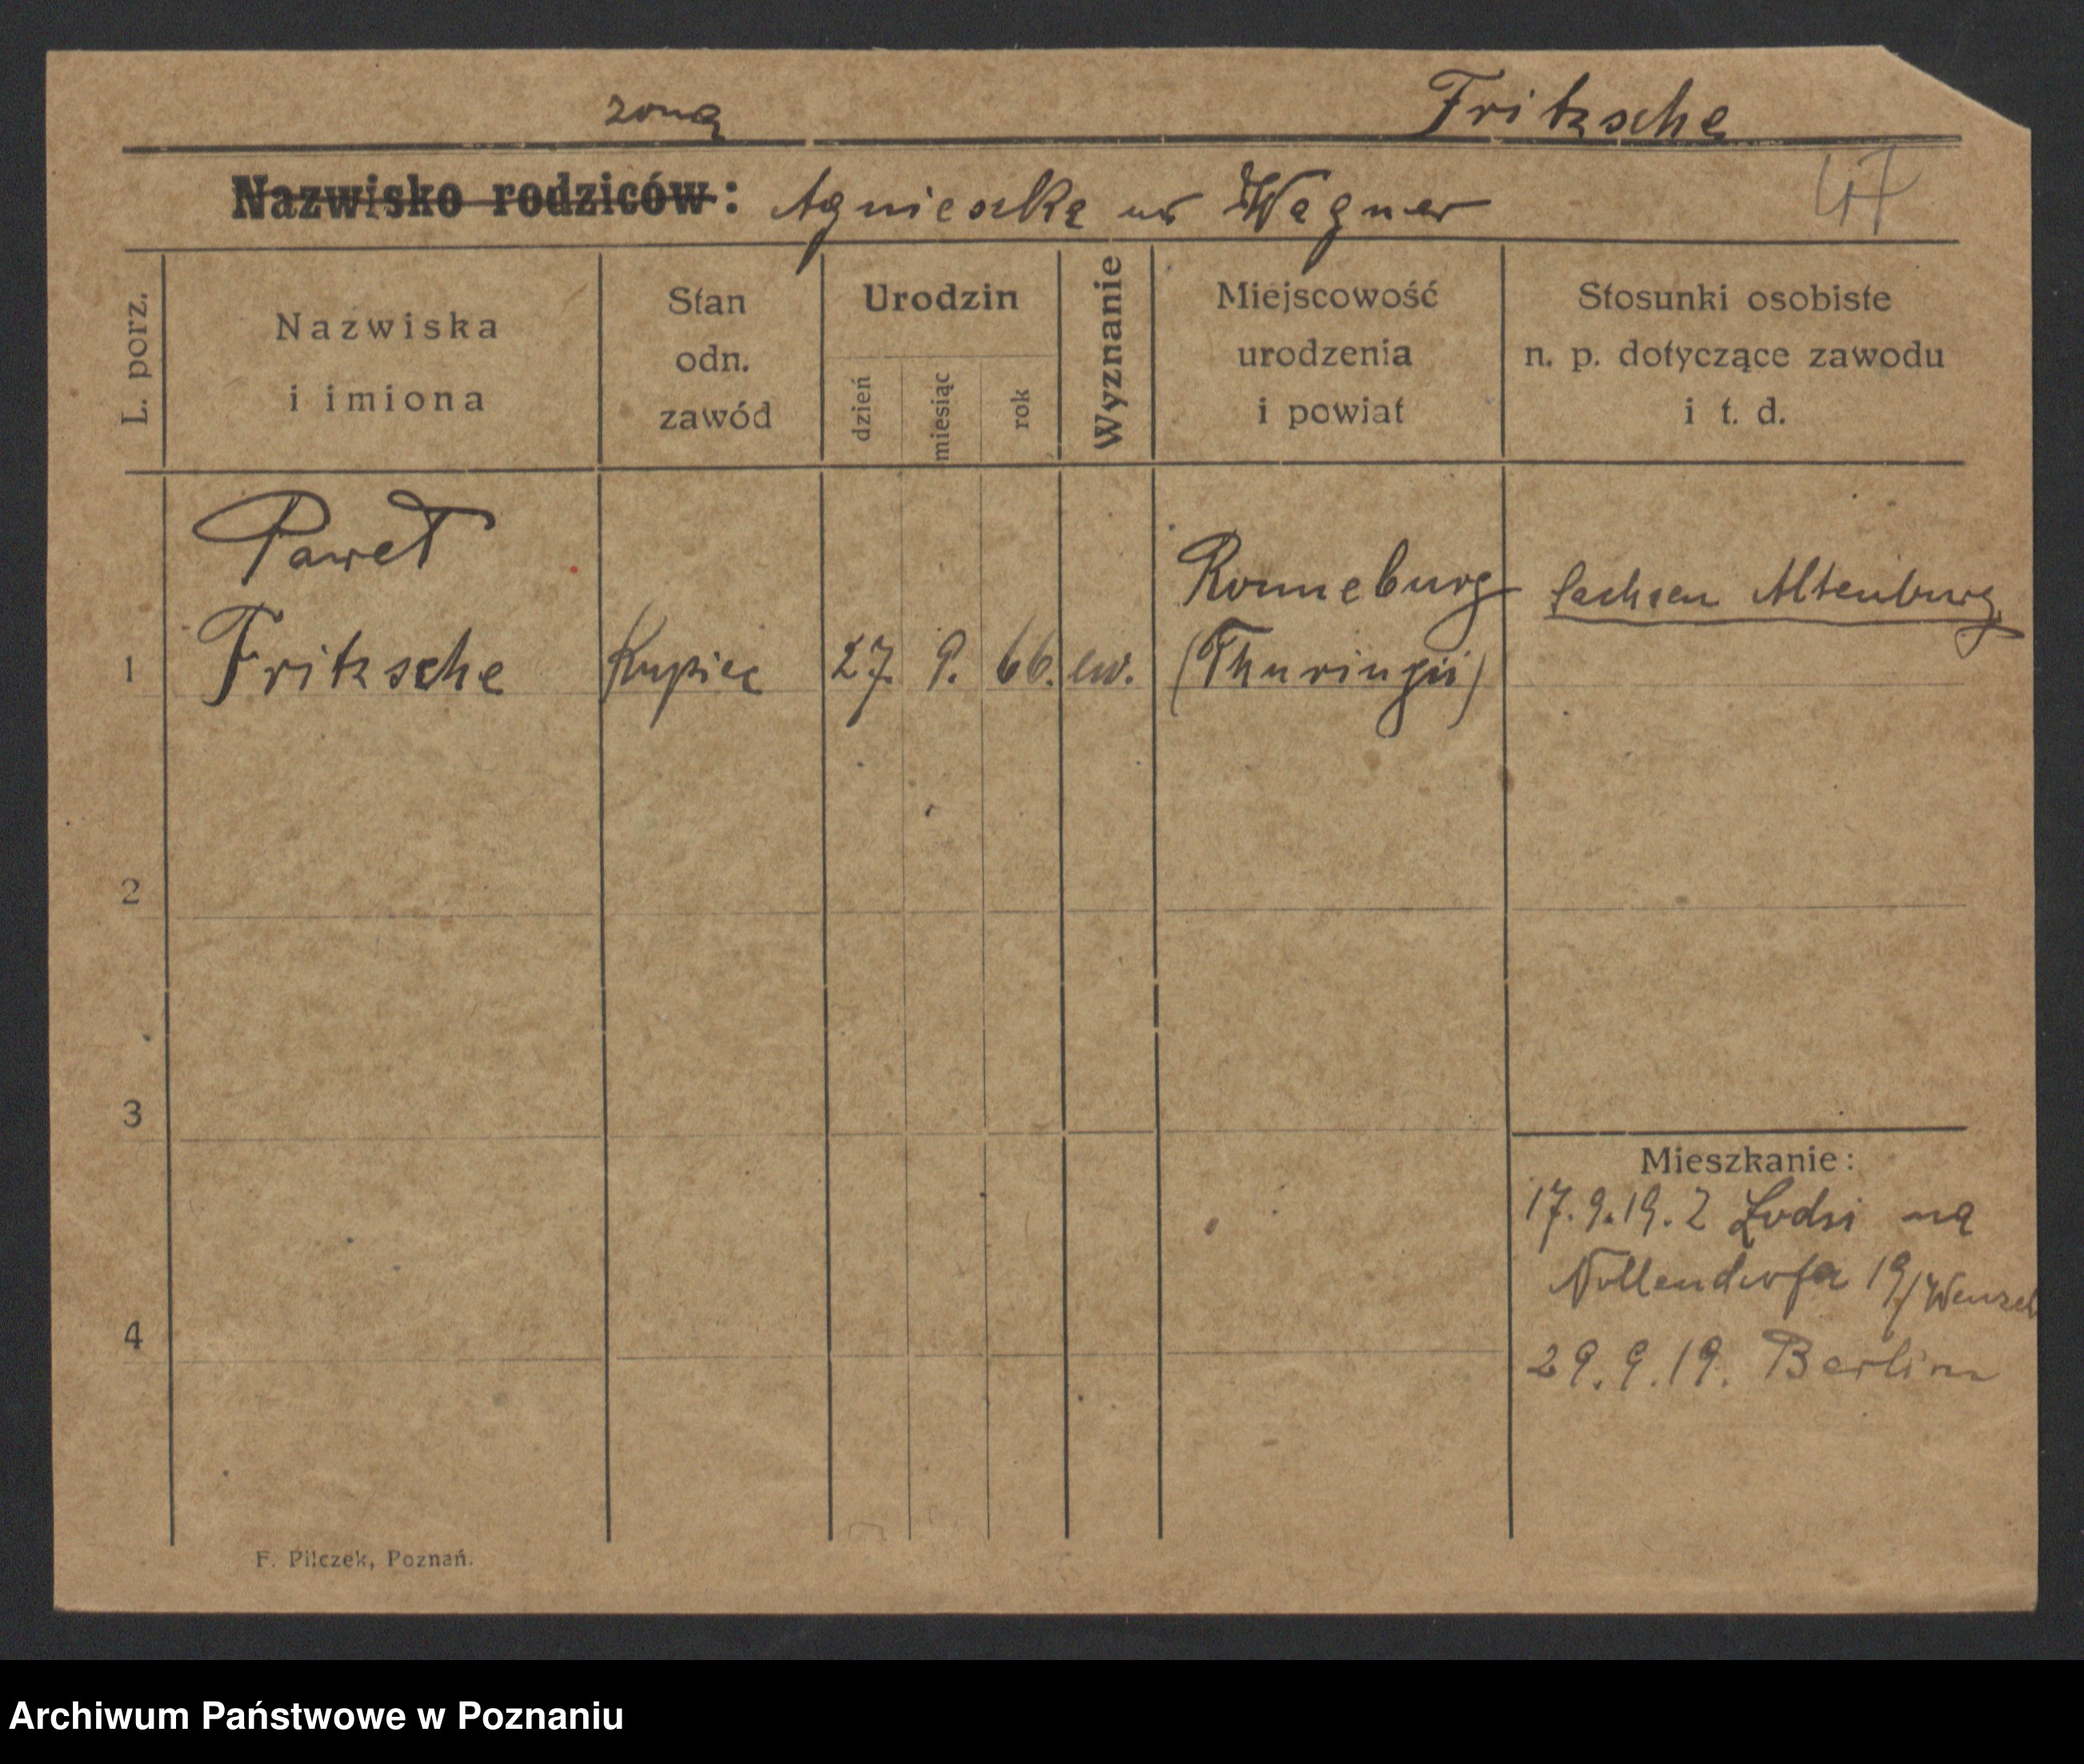 żona Fritzsche
Nazwisko rodziców: Agnieszka ur Wagner 47
L. porz.
Nazwiska
i imiona
Stan
odn.
zawód
Urodzin
dzień
miesiąc
rok
Wyznanie
Miejscowość
urodzenia
i powiat
Stosunki osobiste
n. p. dotyczące zawodu
i t. d.
Paweł
1 Fritzsche Kupiec 27. 9. 66. ew.
Ronneburg
(Thuringii)
Sachsen Altenburg
2
3
4
Mieszkanie:
17.9.19. Z Lodzi na
Nollendorfa 19/Wenzel
29.9.19. Berlin
F. Pilczek, Poznań.
Archiwum Państwowe w Poznaniu